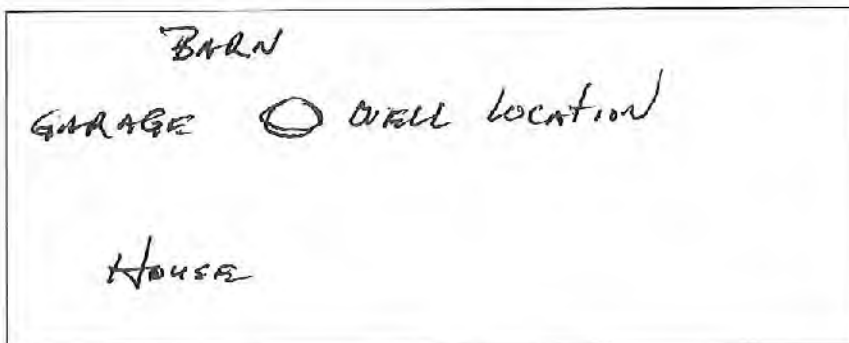 BARN
GARAGE WELL LOCATION
HOUSE